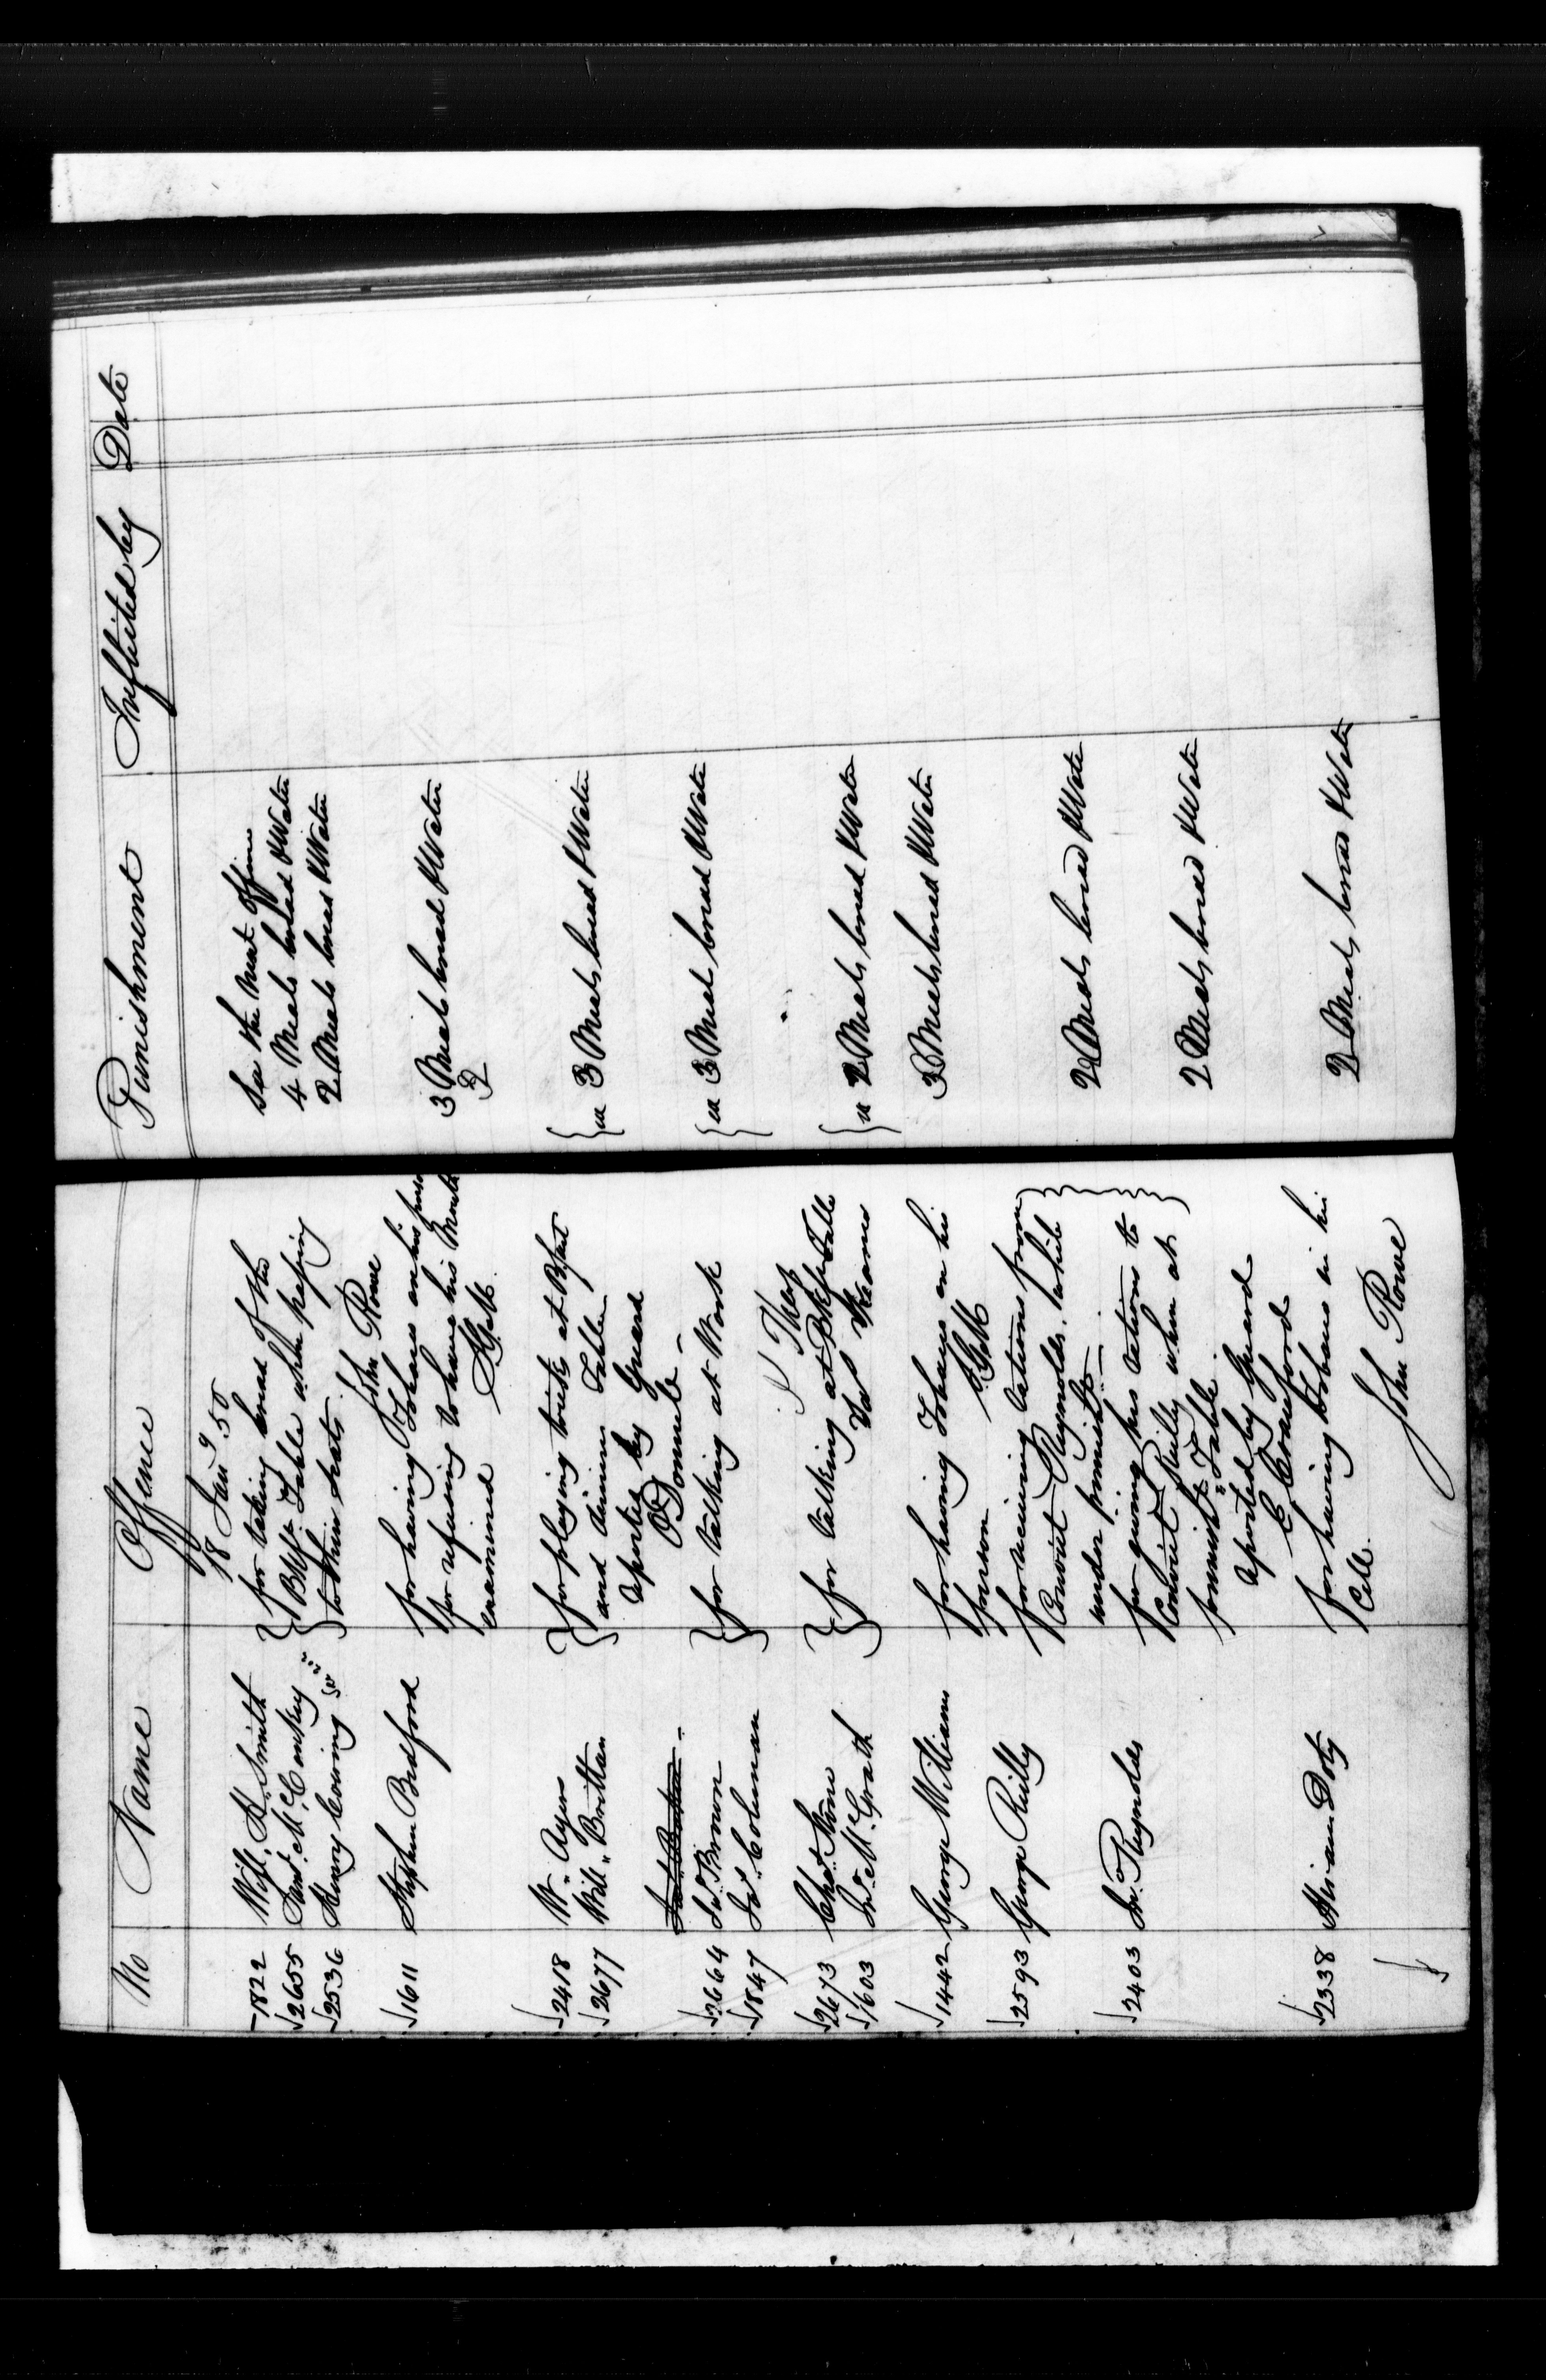 No Name Offence Punishment Inflicted by Date
18 Jany 50
1822 Will. H. Smith for taking bread of the See the next offence
2655 Saml. McConkey Bkft Table when passing 4 Meals bread & Water
2536 Henry Cowing to their seats 2 Meals bread & Water
John Rowe
1611 Stephen Bradford for having Tobacco on his person 3 Meals bread & Water
for refusing to have his Mouth
examined
2418 Wm Ayers for playing tricks at Bfast ea 3 Meals bread & Water
2677 Will. Brittan and dinner Table
reported by Guard
O'Donnell
2664 Js. Brown for talking at Work ea 3 Meals bread & Water
1847 Js. Coleman
2673 Chas. Stone for talking at Bkfst Table ea 2 Meals bread & Water
1603 Js. McGrath
1442 George Williams for having Tobacco on his 3 Meals bread & Water
person
2593 George Reilly for receiving rations from 2 Meals bread & Water
Convict Reynolds, while
under punisht
2403 Js. Reynolds for giving his rations to 2 Meals bread & Water
Convict Reilly when at
punisht Table
reported by Guard
E Crawford
2338 Hiram Doty for having tobacco in his 2 Meals bread & Water
Cell.
John Rowe